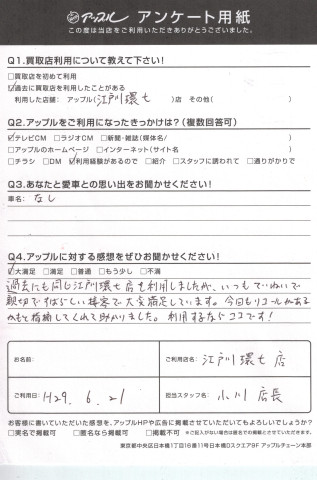 アップル アンケート用紙
この度は当店をご利用いただきありがとうございました。
Q1.買取店利用について教えて下さい!
□買取店を初めて利用
☑過去に買取店を利用したことがある
利用した店舗: アップル(江戸川環七)店 その他( )
Q2.アップルをご利用になったきっかけは?(複数回答可)
☑テレビCM □ラジオCM □新聞・雑誌(媒体名/ )
□アップルのホームページ □インターネット(サイト名 )
□チラシ □DM ☑利用経験があるので □紹介 □スタッフに誘われて □通りがかりで
Q3.あなたと愛車との思い出をお聞かせください!
車名: なし
Q4.アップルに対する感想をぜひお聞かせください!
☑大満足 □満足 □普通 □もう少し □不満
過去にも同じ江戸川環七店を利用しましたが、いつもていねいで
親切ですばらしい接客で大変満足しています。今回もリコールがある
かもと指摘してくれて助かりました。利用するならココです!
お名前:
ご利用店名: 江戸川環七店
ご利用日: H29.6.21
担当スタッフ名: 小川店長
お客様に書いていただいた感想を、アップルHPや広告に掲載させていただいてもよろしいでしょうか?
□実名で掲載可 □匿名なら掲載可 □掲載不可 ※ご記入がない場合は匿名での掲載とさせていただきます。
東京都中央区日本橋1丁目16番11号日本橋Dスクエア9F アップルチェーン本部